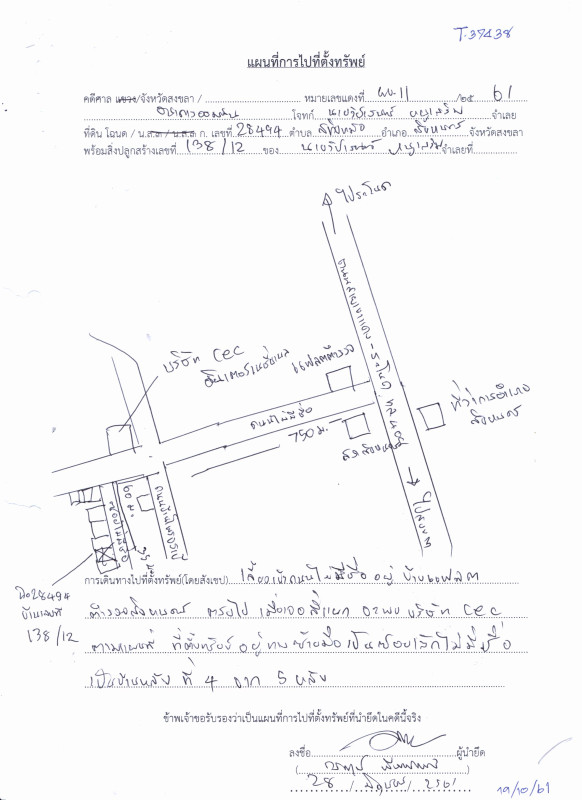 T.37438
แผนที่การไปที่ตั้งทรัพย์
คดีศาล แขวง/จังหวัดสงขลา / หมายเลขแดงที่ ผบ.11 /๒๕ 61
โจทก์ จำเลย
ที่ดิน โฉนด / น.ส.๓ / น.ส.๓ ก. เลขที่ 28494 ตำบล สทิงหม้อ อำเภอ สิงหนคร จังหวัดสงขลา
พร้อมสิ่งปลูกสร้างเลขที่ 138/12 ของ จำเลยที่
ไประโนด
บริษัท CEC
อินเตอร์เนชั่นแนล
แฟลตตำรวจ
ถนนไม่มีชื่อ
750 ม.
ที่ว่าการอำเภอ
สิงหนคร
60 ม.
ซอยไม่มีชื่อ
ไปสงขลา
ฉ.28494
บ้านเลขที่
138/12
การเดินทางไปที่ตั้งทรัพย์(โดยสังเขป) เลี้ยวเข้าถนนไม่มีชื่อ อยู่ ข้างแฟลต
ตำรวจสิงหนคร ตรงไป เมื่อเจอสี่แยก จะพบ บริษัท CEC
ตามแผนที่ ที่ตั้งทรัพย์ อยู่ทางซ้ายมือ เป็นซอยเล็กไม่มีชื่อ
เป็นบ้านหลัง ที่ 4 จาก 5 หลัง
ข้าพเจ้าขอรับรองว่าเป็นแผนที่การไปที่ตั้งทรัพย์ที่นำยึดในคดีนี้จริง
ลงชื่อ ผู้นำยึด
28 / / 2561
19/10/61